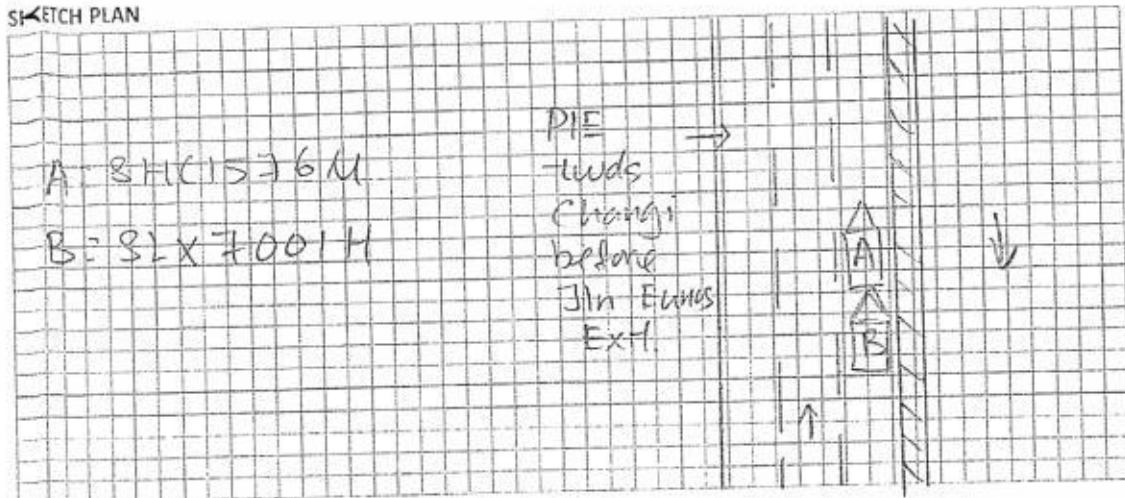 SKETCH PLAN
A: SHC1576M
B: SLX7001H
PIE
twds
Changi
before
Jln Eunos
Exit.
A
B